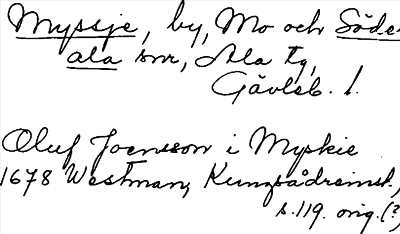 Myssje, by, Mo och Söde
ala snr, Ala tg,
Gävleb. l.
Oluf Joensson i Myskie
1678 Westman, Kungsådreinst.,
s. 119. orig. (?)